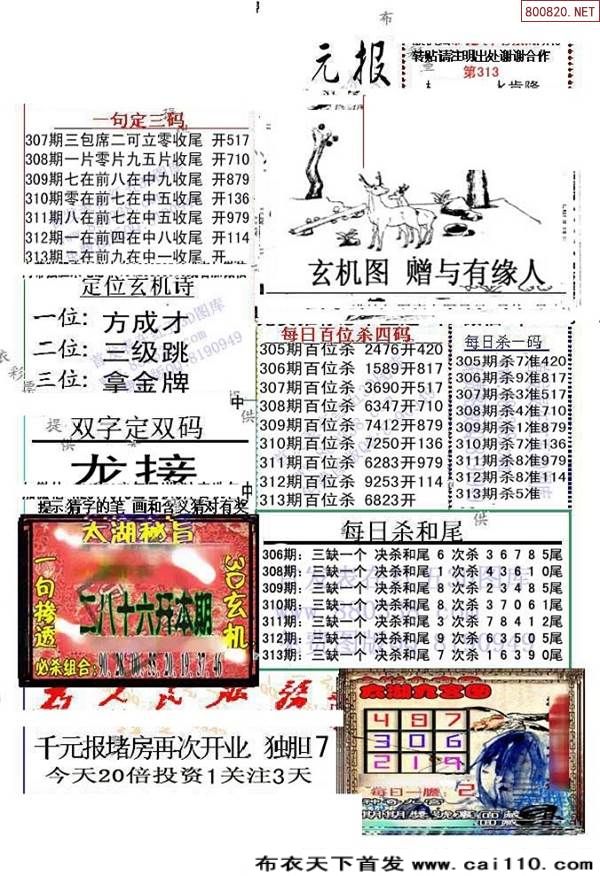 800820.NET
布
元报
转贴请注明出处谢谢合作
第313
一句定三码
307期三包席二可立零收尾 开517
308期一片零片九五片收尾 开710
309期七在前八在中九收尾 开879
310期零在前七在中五收尾 开136
311期八在前七在中五收尾 开979
312期一在前四在中八收尾 开114
313期三在前九在中一收尾 开
玄机图 赠与有缘人
定位玄机诗
一位: 方成才
二位: 三级跳
三位: 拿金牌
每日百位杀四码
305期百位杀 2476开420
306期百位杀 1589开817
307期百位杀 3690开517
308期百位杀 6347开710
309期百位杀 7412开879
310期百位杀 7250开136
311期百位杀 6283开979
312期百位杀 9253开114
313期百位杀 6823开
每日杀一码
305期杀7准420
306期杀9准817
307期杀3准517
308期杀4准710
309期杀1准879
310期杀7准136
311期杀8准979
312期杀8准114
313期杀5准
双字定双码
龙接
提示:猜字的笔 画和含义猜对有奖
太湖秘旨
一句掺透
3D玄机
二八十六开本期
必杀组合:90、28、00、33、20、19、37、46
每日杀和尾
306期: 三缺一个 决杀和尾 6 次杀 3 6 7 8 5尾
308期: 三缺一个 决杀和尾 1 次杀 4 3 6 1 0尾
309期: 三缺一个 决杀和尾 8 次杀 2 3 4 8 5尾
310期: 三缺一个 决杀和尾 8 次杀 3 7 0 6 1尾
311期: 三缺一个 决杀和尾 3 次杀 7 8 4 1 2尾
312期: 三缺一个 决杀和尾 9 次杀 0 3 5 0 5尾
313期: 三缺一个 决杀和尾 7 次杀 1 5 3 9 0尾
千元报堵房再次开业 独胆7
今天20倍投资1关注3天
太湖九宫图
4 8 7
3 0 6
2 1 9
每日一胆: 2
布衣天下首发 www.cai110.com